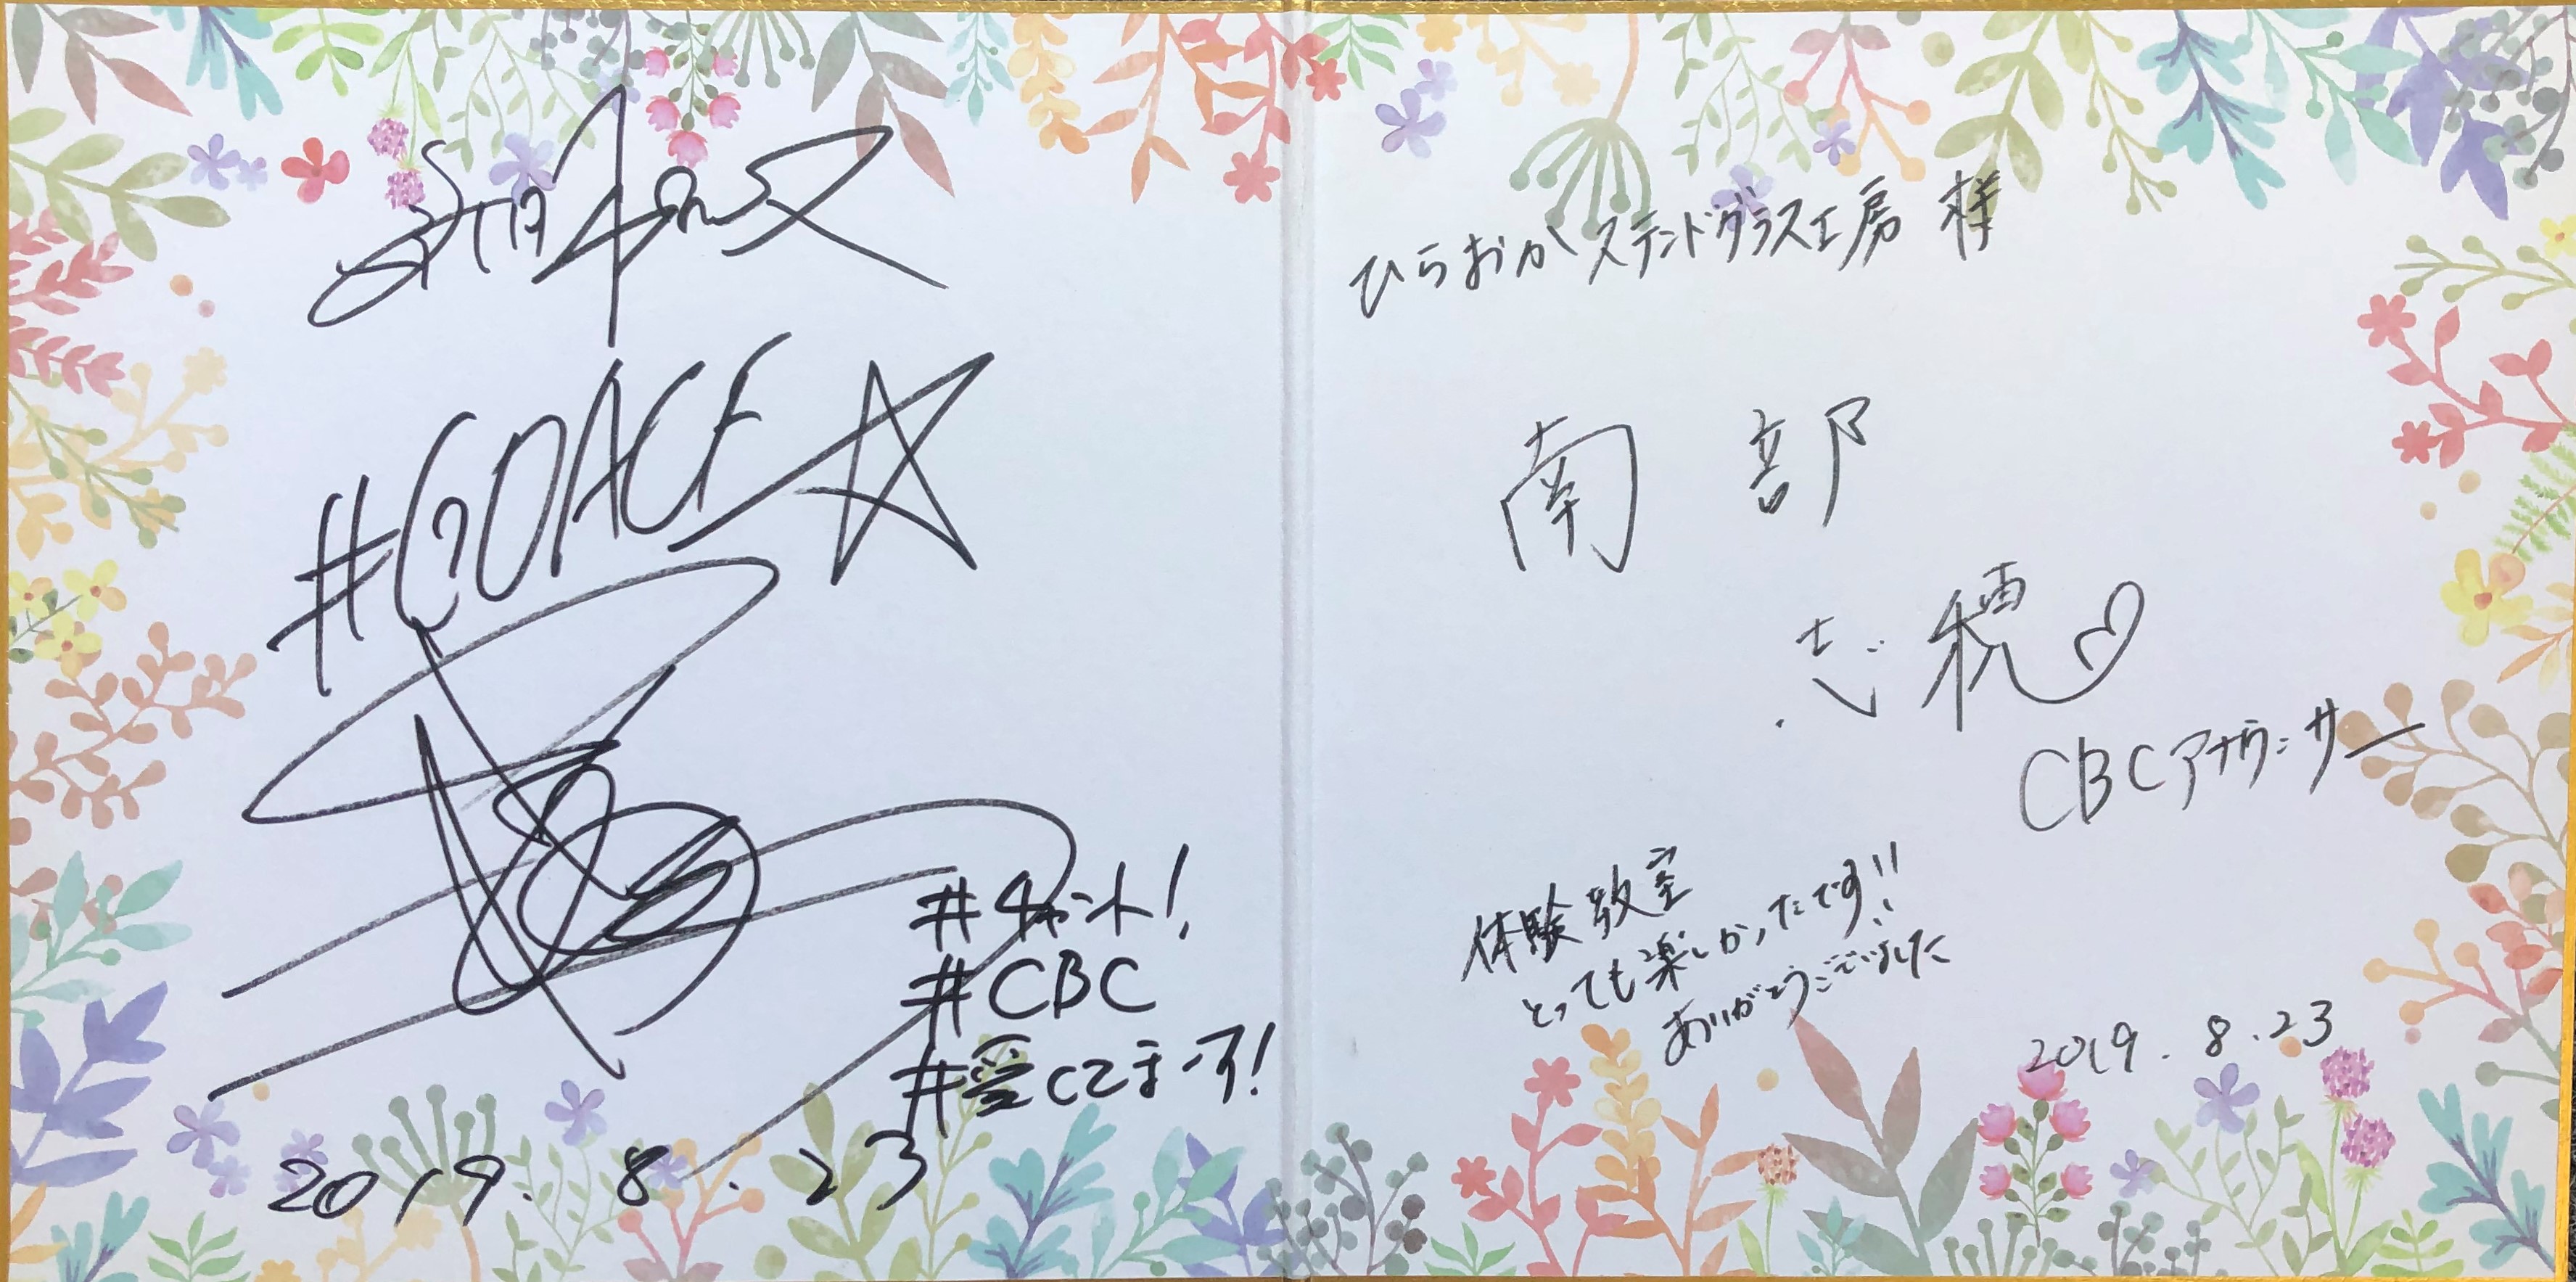 #GDACE
#チャント!
#CBC
2019. 8. 23
ひらおかステンドグラス工房 様
南部
志穂
CBCアナウンサー
体験教室
とっても楽しかったです!!
ありがとうございました
2019. 8. 23